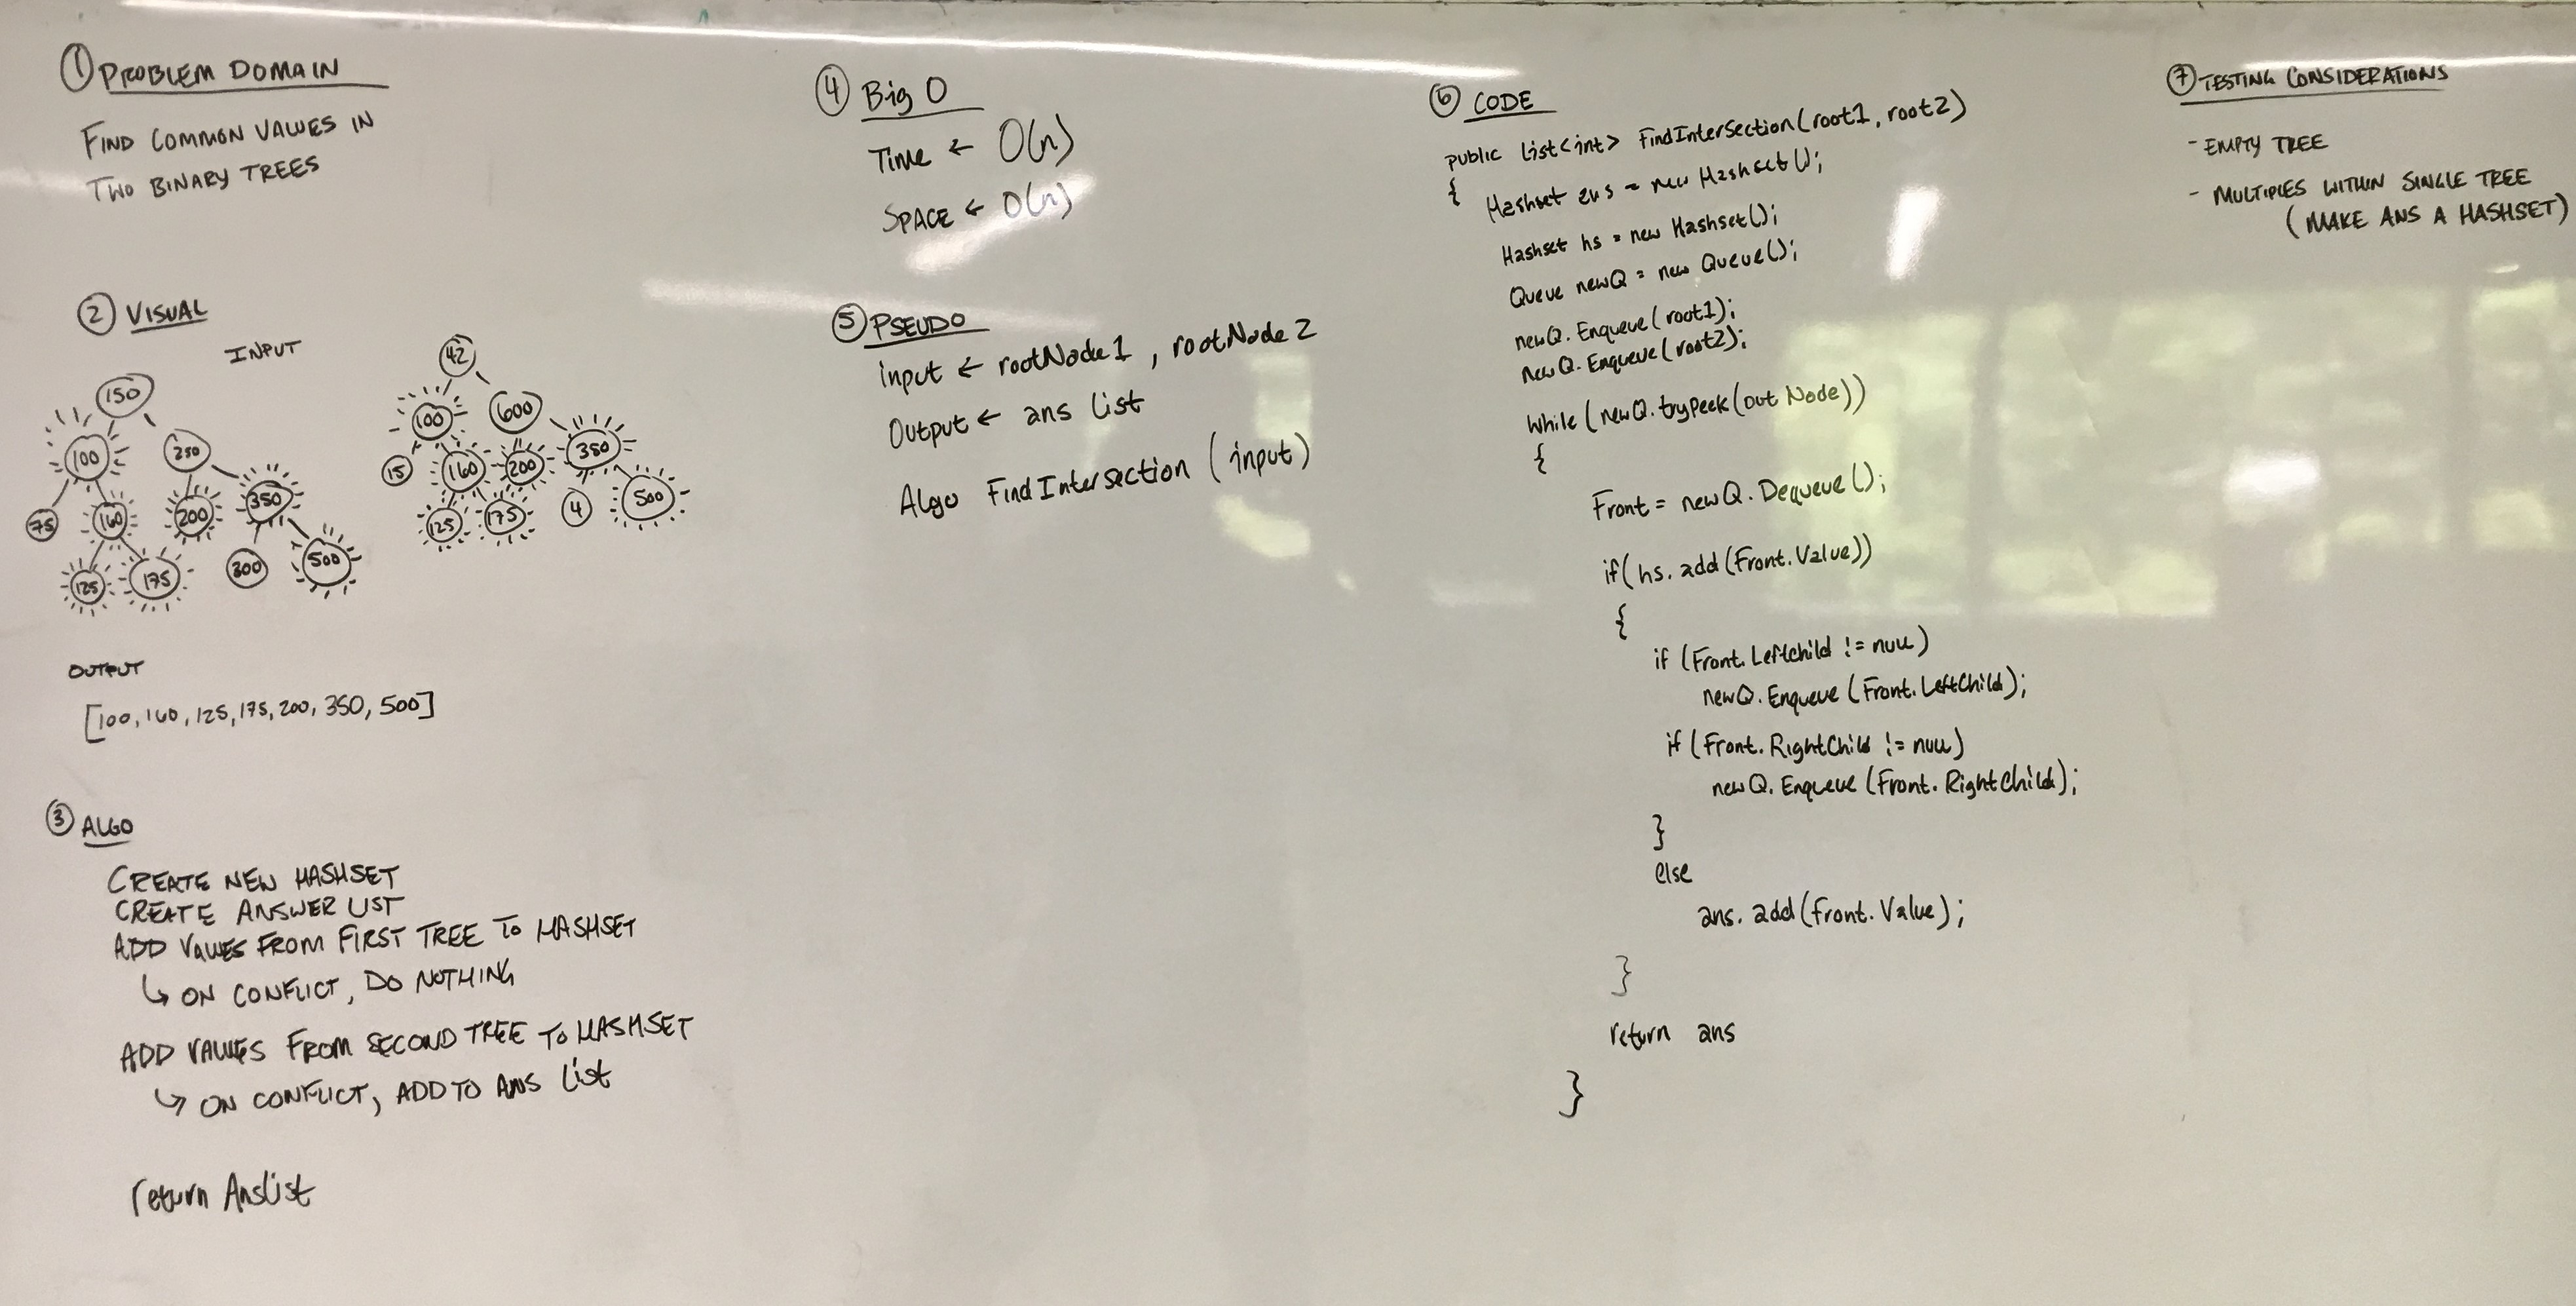 ① PROBLEM DOMAIN
FIND COMMON VALUES IN
TWO BINARY TREES
② VISUAL
INPUT
150
100
250
75
160
200
350
125
175
300
500
42
100
600
15
160
200
350
125
175
4
500
OUTPUT
[100, 160, 125, 175, 200, 350, 500]
③ ALGO
CREATE NEW HASHSET
CREATE ANSWER LIST
ADD VALUES FROM FIRST TREE TO HASHSET
↳ ON CONFLICT, DO NOTHING
ADD VALUES FROM SECOND TREE TO HASHSET
↳ ON CONFLICT, ADD TO ANS List
return AnsList
④ Big O
Time ← O(n)
SPACE ← O(n)
⑤ PSEUDO
input ← rootNode1, rootNode2
Output ← ans list
Algo FindIntersection (input)
⑥ CODE
public List<int> FindIntersection(root1, root2)
{ Hashset ans = new Hashset();
Hashset hs = new Hashset();
Queue newQ = new Queue();
newQ.Enqueue(root1);
newQ.Enqueue(root2);
while (newQ.tryPeek(out Node))
{
Front = newQ.Dequeue();
if(hs.add(Front.Value))
{
if (Front.LeftChild != null)
newQ.Enqueue (Front.LeftChild);
if (Front.RightChild != null)
newQ.Enqueue (Front.RightChild);
}
else
ans.add(Front.Value);
}
return ans
}
⑦ TESTING CONSIDERATIONS
- EMPTY TREE
- MULTIPLES WITHIN SINGLE TREE
(MAKE ANS A HASHSET)